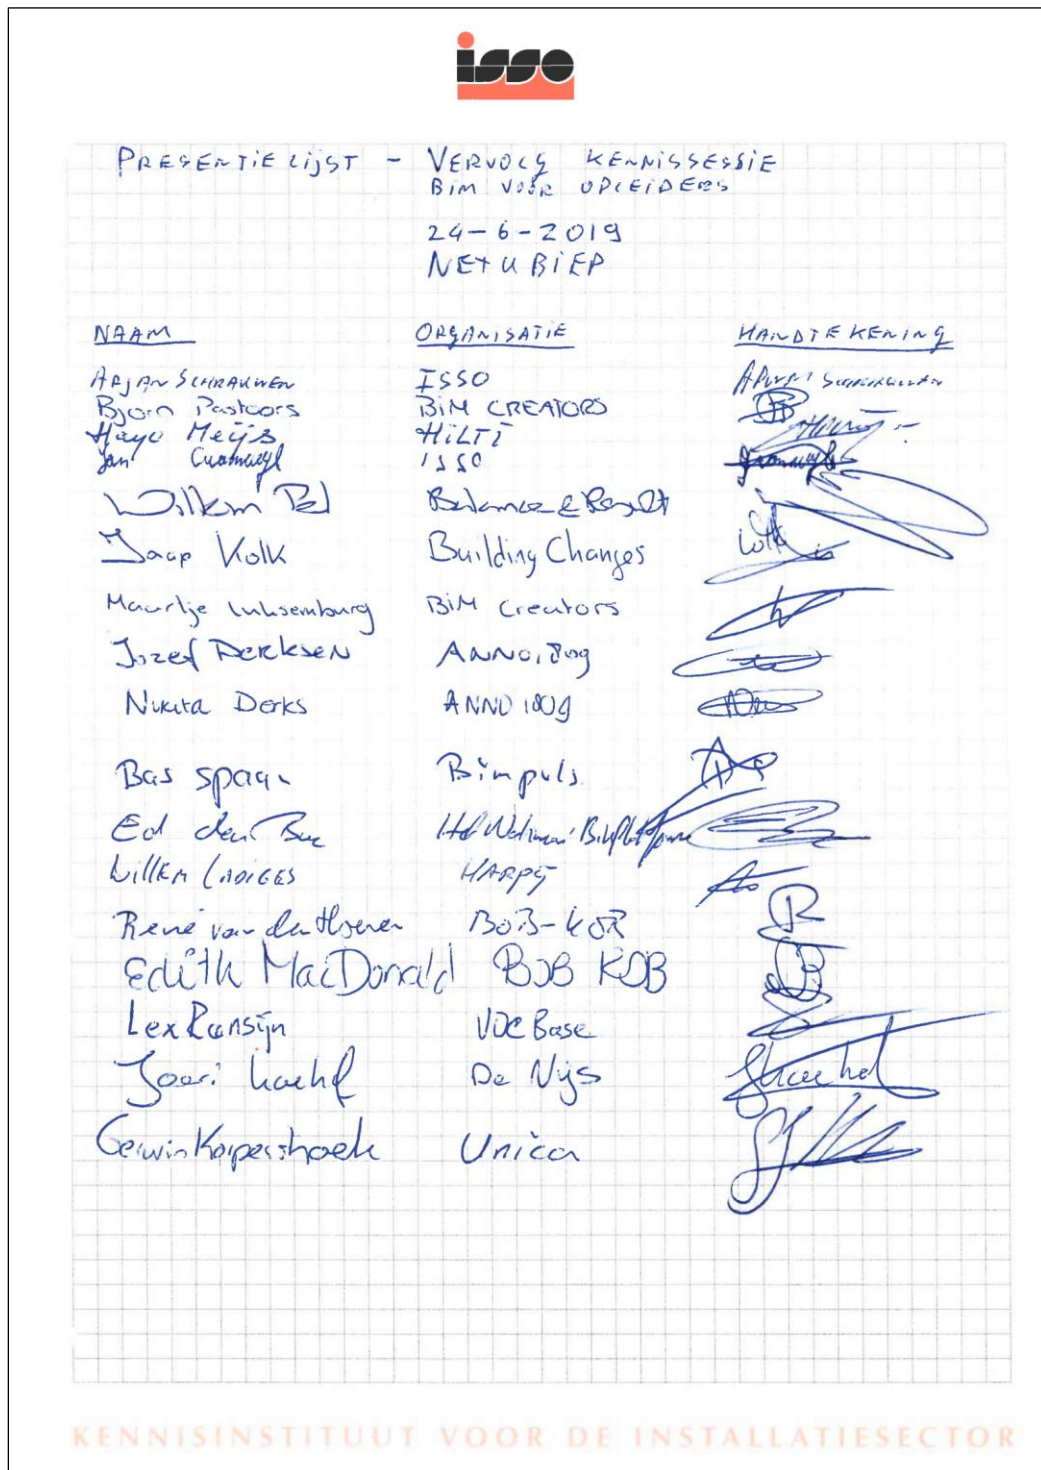 isso
PRESENTIELIJST - VERVOLG KENNISSESSIE
BIM VOOR OPLEIDERS
24-6-2019
NETUBIEP
NAAM ORGANISATIE HANDTEKENING
ARJAN SCHRAUWEN ISSO
Bjorn Pastoors BIM CREATORS
Hayo Meijs HILTI
Jan ISSO
Willem Pel Balance & Result
Jaap Kolk Building Changes
Maartje Luksemburg BIM Creators
Jozef Derksen ANNO1809
Nikita Derks ANNO 1809
Bas Spaan Bimpuls
Ed den
Willem LADIGES HARPY
René van der Hoeven BOB-KOB
Edith MacDonald BOB KOB
Lex Ransijn VDC Base
Joeri De Nijs
Gerwin Korpershoek Unica
KENNISINSTITUUT VOOR DE INSTALLATIESECTOR